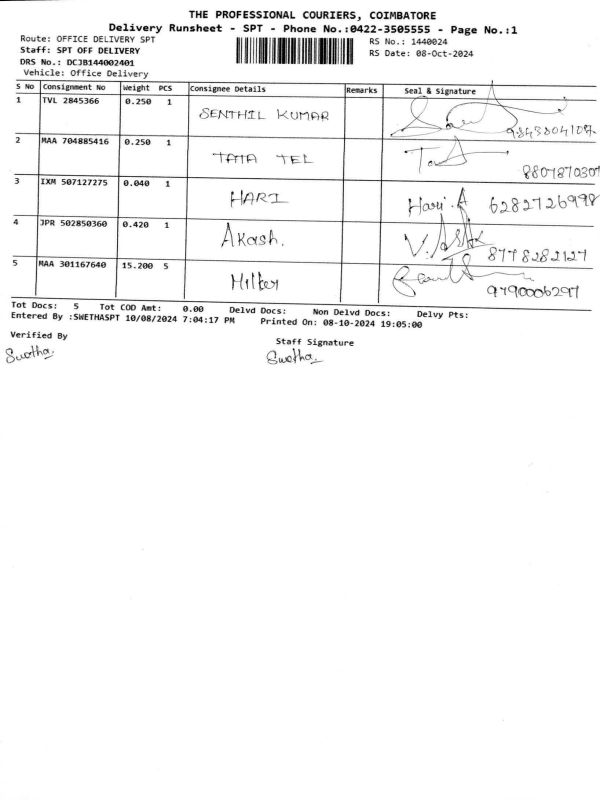 THE PROFESSIONAL COURIERS, COIMBATORE
Delivery Runsheet - SPT - Phone No.:0422-3505555 - Page No.:1
Route: OFFICE DELIVERY SPT RS No.: 1440024
Staff: SPT OFF DELIVERY RS Date: 08-Oct-2024
DRS No.: DCJB144002401
Vehicle: Office Delivery
S No Consignment No Weight PCS Consignee Details Remarks Seal & Signature
1 TVL 2845366 0.250 1 SENTHIL KUMAR
2 MAA 704885416 0.250 1 TATA TEL 8807870307
3 IXM 507127275 0.040 1 HARI Hari.A 6282726998
4 JPR 502850360 0.420 1 Akash. 8778282127
5 MAA 301167640 15.200 5 9790006297
Tot Docs: 5 Tot COD Amt: 0.00 Delvd Docs: Non Delvd Docs: Delvy Pts:
Entered By :SWETHASPT 10/08/2024 7:04:17 PM Printed On: 08-10-2024 19:05:00
Verified By Staff Signature
Swetha. Swetha.